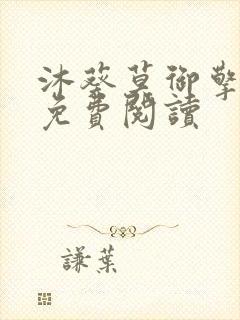 沐葵草御擎
免費閱讀
謙葉